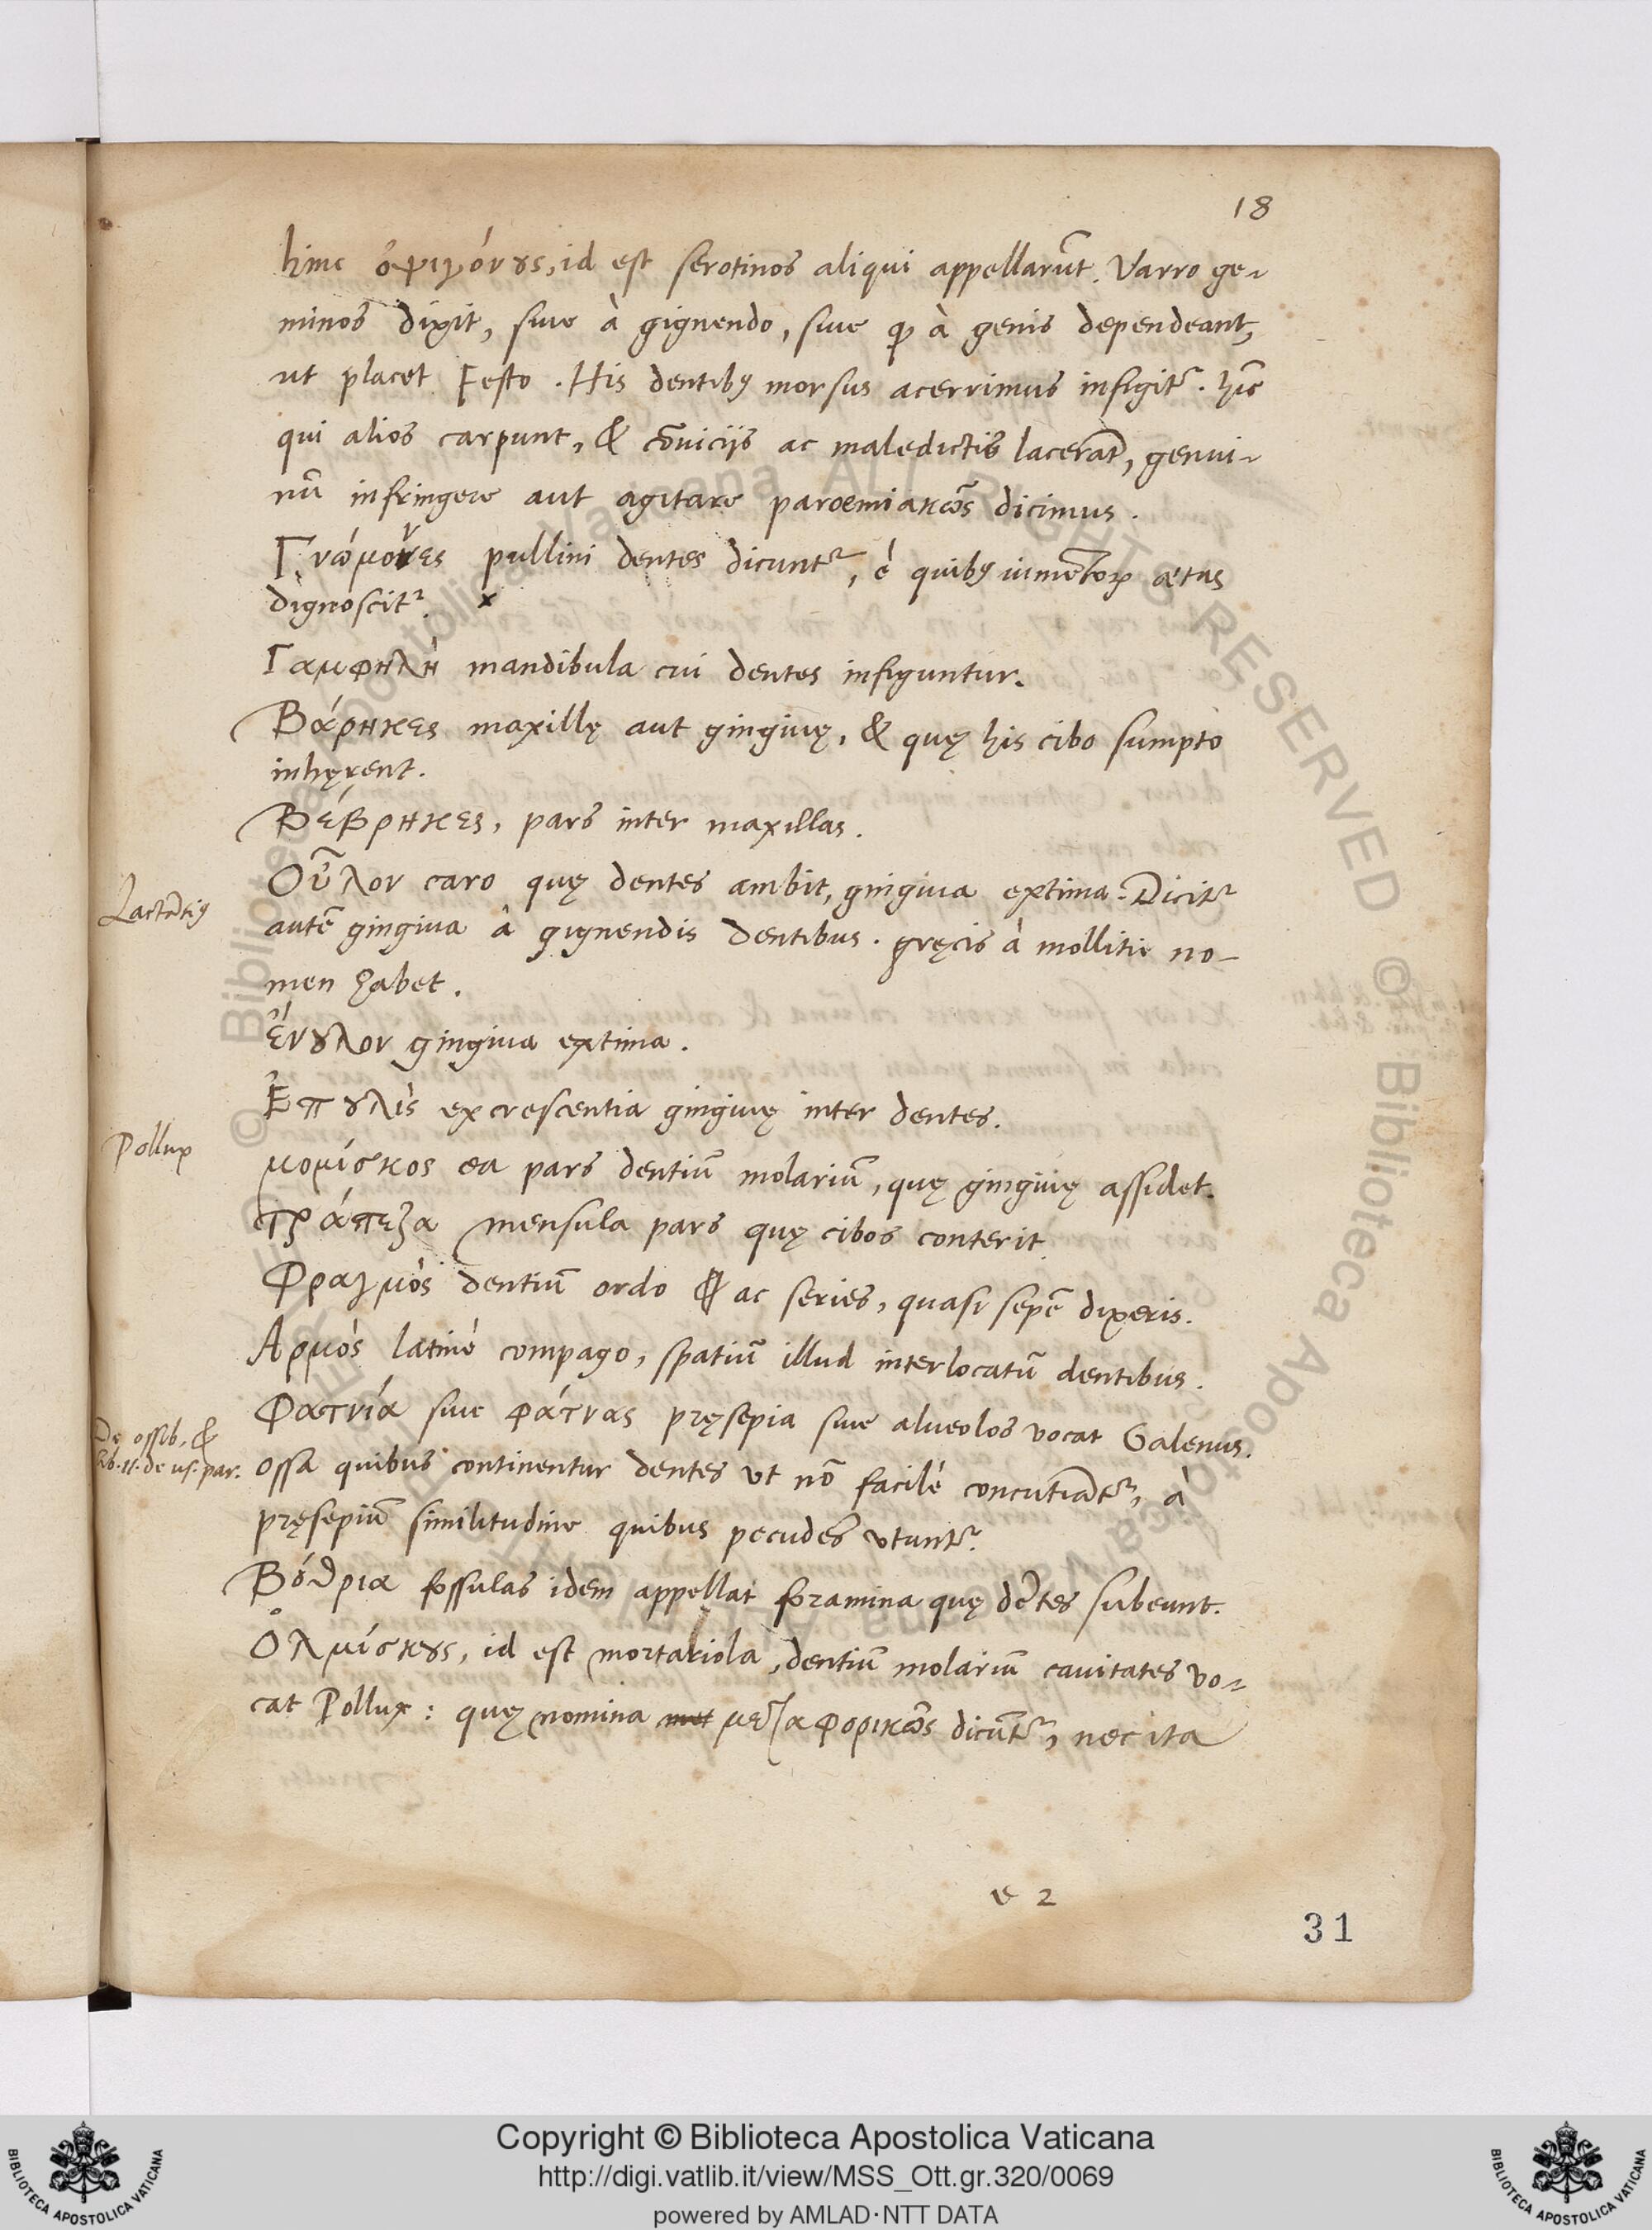 18
hinc ὀψιγόνȣς, id est serotinos aliqui appellarũt. Varro ge-
minos dixit, siue à gignendo, siue ꝙ à genis dependeant,
ut placet Festo. His dentibꝰ morsus acerrimus infigitr. hĩc
qui alios carpunt, & cõuicijs ac maledictis lacerãt, genui-
nũ infringere aut agitare paroemiακῶς dicimus.
Γνώμονες pullini dentes dicuntr, è quibꝰ iumẽtoꝝ ætas
dignoscitr. x
Γαμφηλὴ mandibula cui dentes infiguntur.
Βάρηκες maxillę aut gingiuę, & quę his cibo sumpto
inhęrent.
Βέβρηκες, pars inter maxillas.
Lactãtiꝰ
Οὖλον caro quę dentes ambit, gingiua extima. Dicitr
autẽ gingiua â gignendis dentibus. gręcis à mollitie no-
men habet.
ἔνȣλον gingiua extima.
Ἐπȣλὶς excrescentia gingiuę inter dentes.
Pollux
μομίσκος ea pars dentiũ molariũ, quę gingiuę assidet.
τράπεζα mensula pars quę cibos conterit.
Φραγμὸς dentiũ ordo ac series, quasi sepẽ dixeris.
Ἁρμὸς latinè compago, spatiũ illud interlocatũ dentibus.
Φατνία siue φάτνας pręsepia siue alueolos vocat Galenus.
De ossib. &
lib. 11. de us. par.
ossa quibus continentur dentes ut nõ facilè concutiãtr, à
pręsepiũ similitudine quibus pecudes utuntr.
Βόθρια fossulas idem appellat foramina quę dẽtes subeunt.
Ὁλμίσκȣς, id est mortariola, dentiũ molariũ cauitates vo-
cat Pollux: quę nomina met μεταφορικῶς dicũtr, nec ita
e 2
31
Copyright © Biblioteca Apostolica Vaticana
http://digi.vatlib.it/view/MSS_Ott.gr.320/0069
powered by AMLAD·NTT DATA
BIBLIOTECA APOSTOLICA VATICANA
BIBLIOTECA APOSTOLICA VATICANA